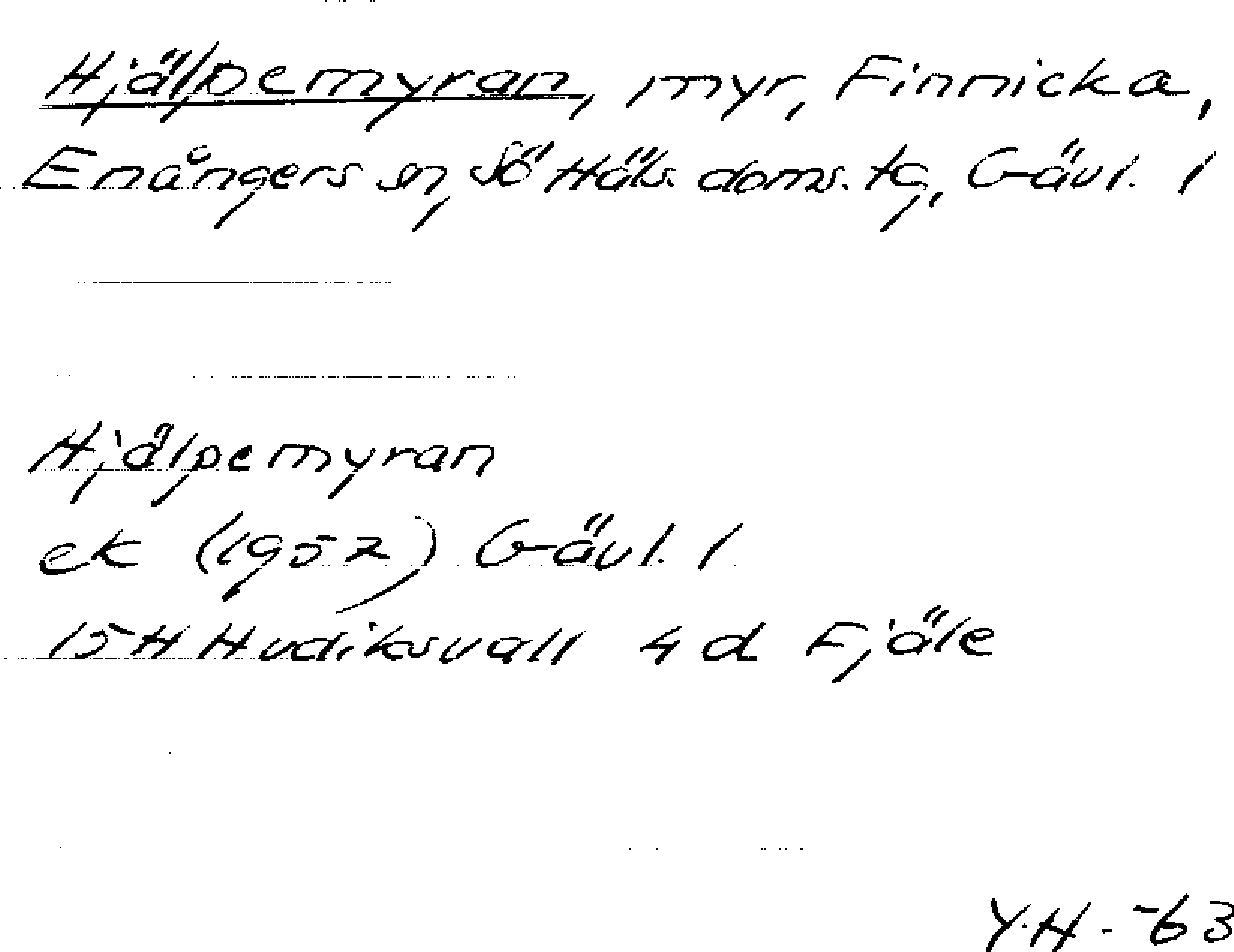 Hjälpemyran, myr, Finnicka,
Enångers sn, Sö Häls. doms. tg, Gävl. l
Hjälpemyran
ek (1957) Gävl. l
15H Hudiksvall 4 d Fjäle
Y.H. -63